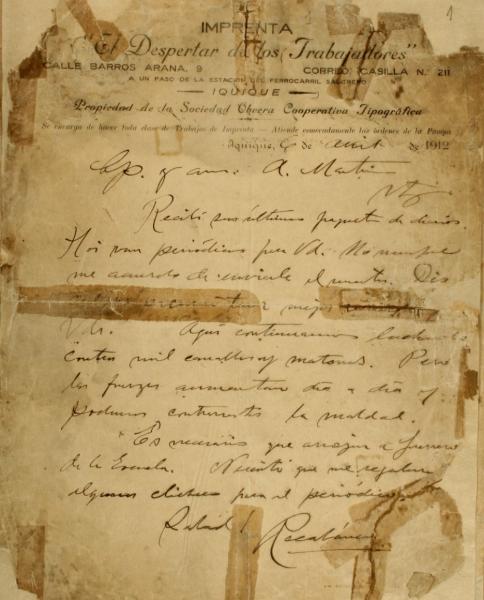 1
IMPRENTA
"El Despertar de los Trabajadores"
CALLE BARROS ARANA, 9 CORREO, CASILLA N.° 211
A UN PASO DE LA ESTACION DEL FERROCARRIL SALITRERO
IQUIQUE
Propiedad de la Sociedad Obrera Cooperativa Tipográfica
Se encarga de hacer toda clase de Trabajos de Imprenta — Atiende esmeradamente las órdenes de la Pampa
Iquique, de Abril de 1912
Cp. y am: A. Martin
Recibí sus últimos paquetes de diarios.
Hoi van periódicos para Vd. No siempre
me acuerdo de enviarle el nuestro.
mejor
Vds. Aquí continuamos luchando
contra mil canallas y matones. Pero
las fuerzas aumentan día a día y
podemos contrarrestar la maldad.
Es necesario que a Guerrero
de la Escuela. Necesito que me regalen
algunos clichées para el periódico.
Salud! Recabarren